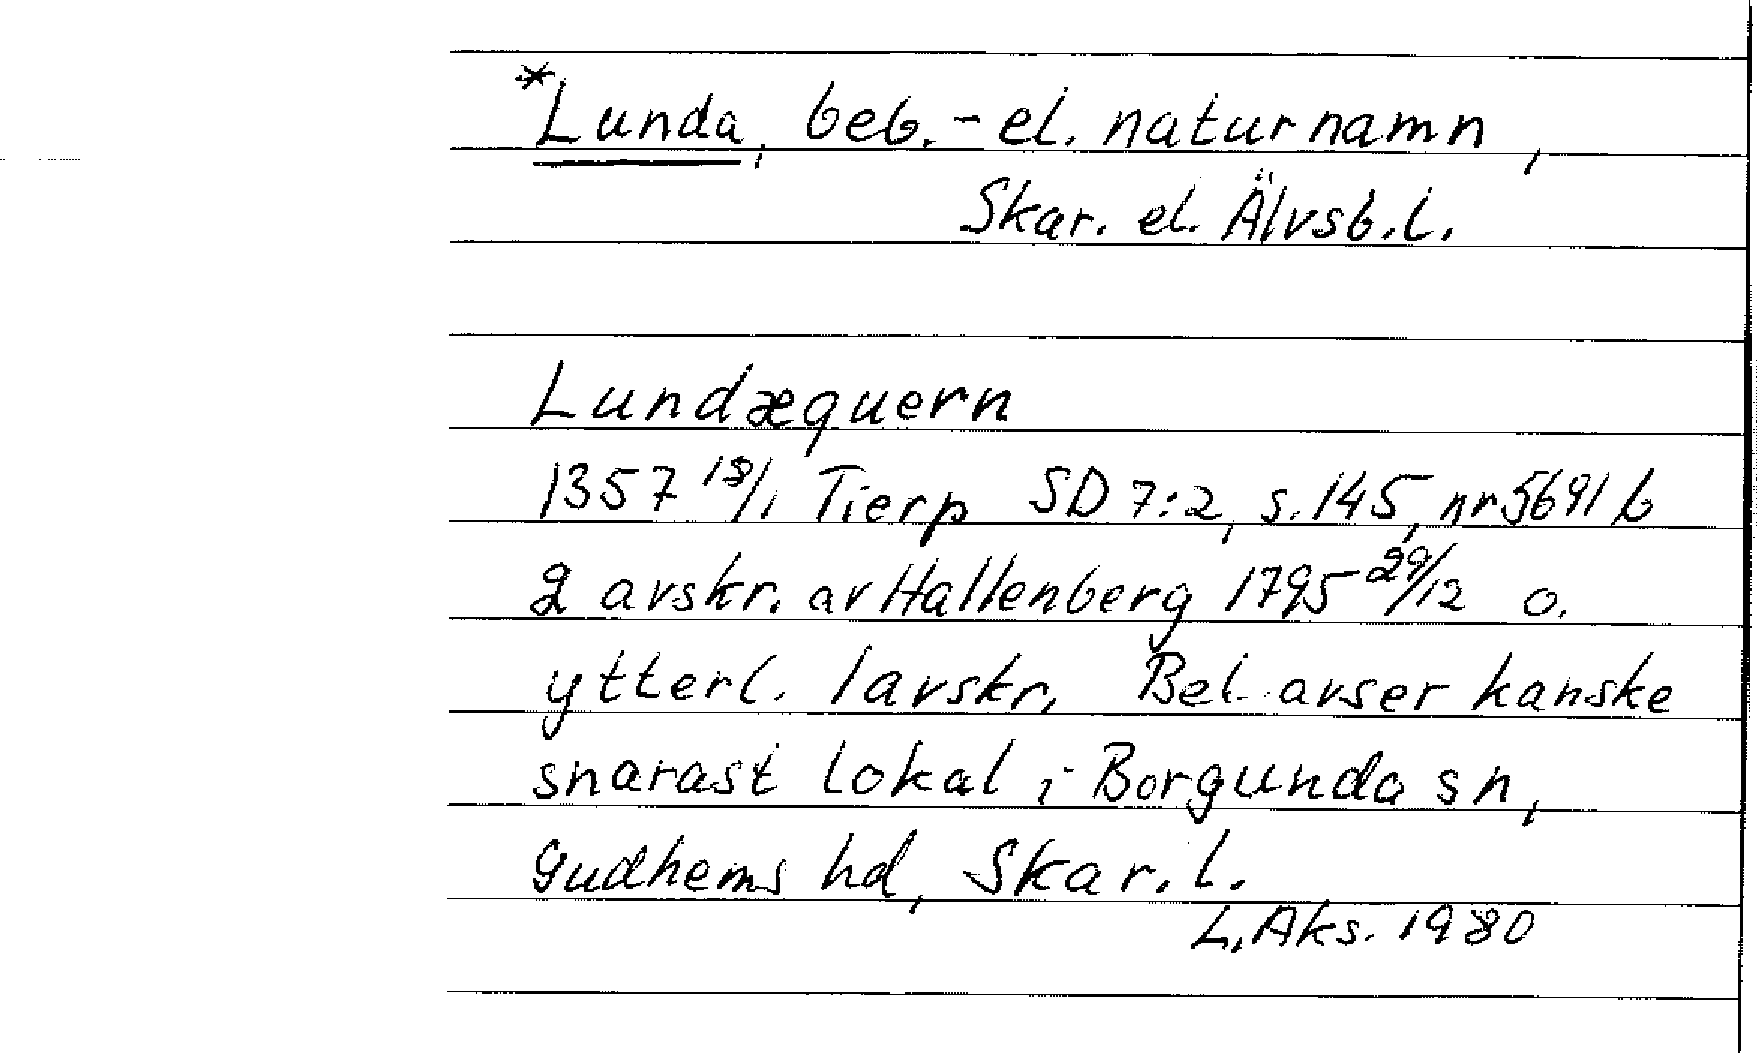 *Lunda, beb.- el. naturnamn,
Skar. el. Älvsb.l.
Lundæquern
1357 18/1 Tierp SD 7:2, s.145, nr 5691 b
2 avskr. av Hallenberg 1795 29/12 o.
ytterl. 1avskr. Bel. avser kanske
snarast lokal i Borgunda sn,
Gudhems hd, Skar.l.
L.Aks. 1980